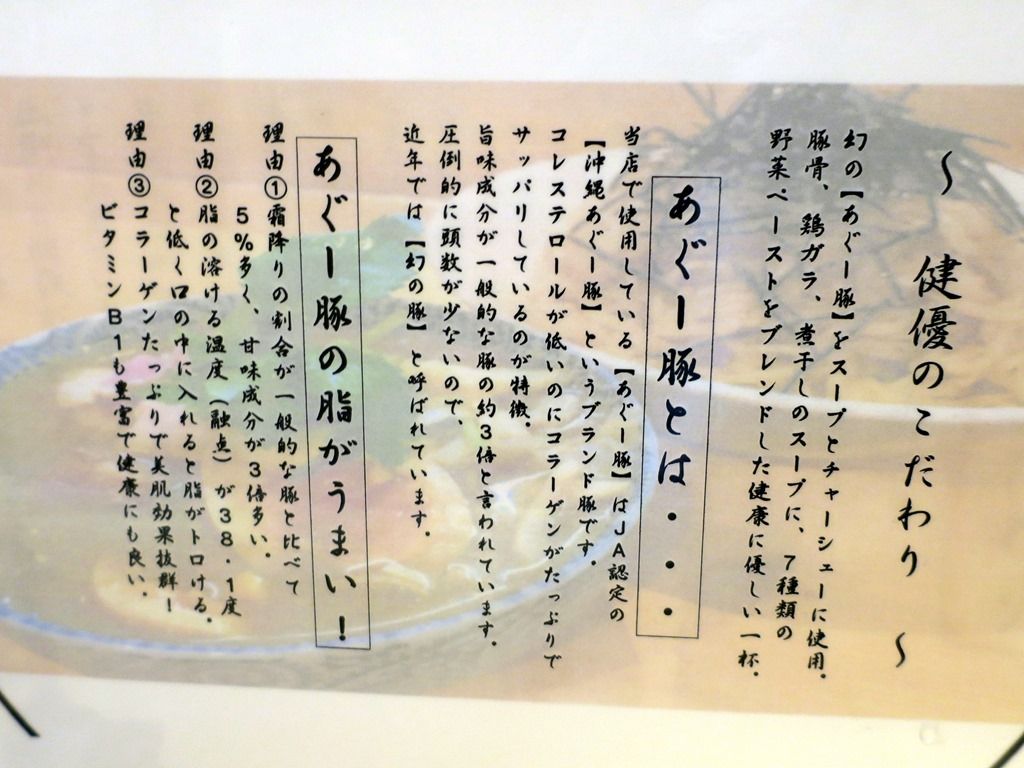 〜 健優のこだわり 〜
幻の【あぐー豚】をスープとチャーシューに使用.
豚骨、鶏ガラ、煮干しのスープに、7種類の
野菜ペーストをブレンドした健康に優しい一杯.
あぐー豚とは・・・
当店で使用している【あぐー豚】はJA認定の
【沖縄あぐー豚】というブランド豚です.
コレステロールが低いのにコラーゲンがたっぷりで
サッパリしているのが特徴.
旨味成分が一般的な豚の約3倍と言われています.
圧倒的に頭数が少ないので、
近年では【幻の豚】と呼ばれています.
あぐー豚の脂がうまい!
理由①霜降りの割合が一般的な豚と比べて
5%多く、甘味成分が3倍多い.
理由②脂の溶ける温度(融点)が38.1度
と低く口の中に入れると脂がトロける.
理由③コラーゲンたっぷりで美肌効果抜群!
ビタミンB1も豊富で健康にも良い.